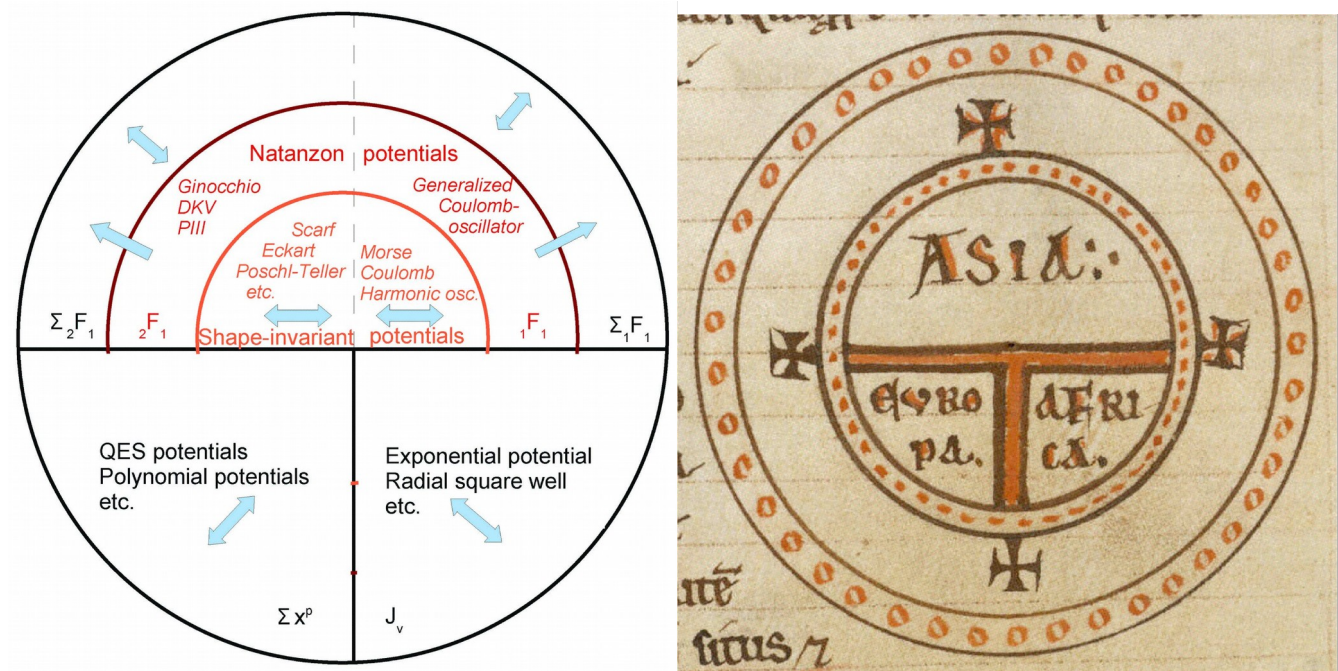 Natanzon potentials
Ginocchio
DKV
PIII
Generalized
Coulomb-
oscillator
Scarf
Eckart
Poschl-Teller
etc.
Morse
Coulomb
Harmonic osc.
Σ ₂F₁
₂F₁
Shape-invariant potentials
₁F₁
Σ₁F₁
QES potentials
Polynomial potentials
etc.
Exponential potential
Radial square well
etc.
Σ xᵖ
Jᵥ
ASIA:·
EVRO
PA.
AFRI
CA.
situs